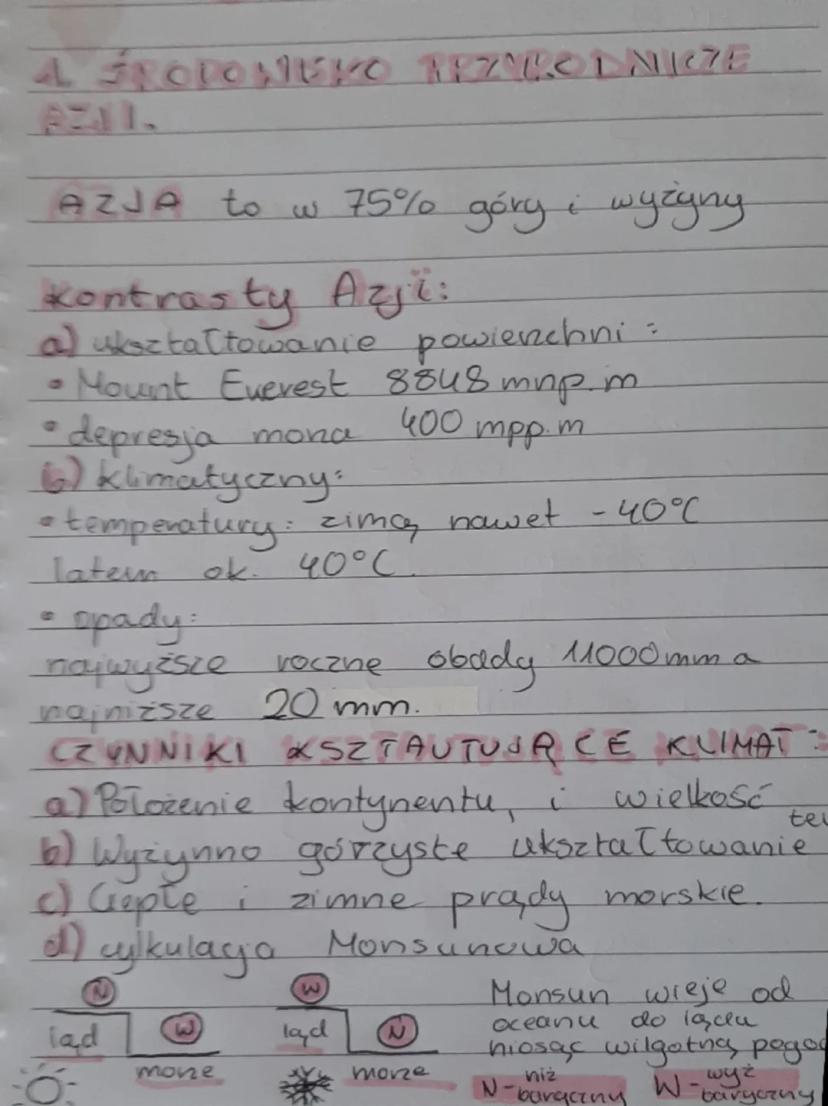 1. ŚRODOWISKO PRZYRODNICZE
AZJI.
AZJA to w 75% góry i wyżyny
Kontrasty Azji:
a) ukształtowanie powierzchni:
• Mount Everest 8848 mnp.m
• depresja morza 400 mpp.m
b) klimatyczny:
• temperatury: zimą nawet -40°C
latem ok. 40°C.
• opady:
najwyższe roczne obady 11000mm a
najniższe 20 mm.
CZYNNIKI KSZTAUTUJĄCE KLIMAT:
a) Położenie kontynentu, i wielkość
b) Wyżynno górzyste ukształtowanie
c) Ciepłe i zimne prądy morskie.
d) cylkulacja Monsunowa
N W Monsun wieje od
ląd W ląd N oceanu do lądu
niosąc wilgotną
morze morze N-niż baryczny W-wyż baryczny